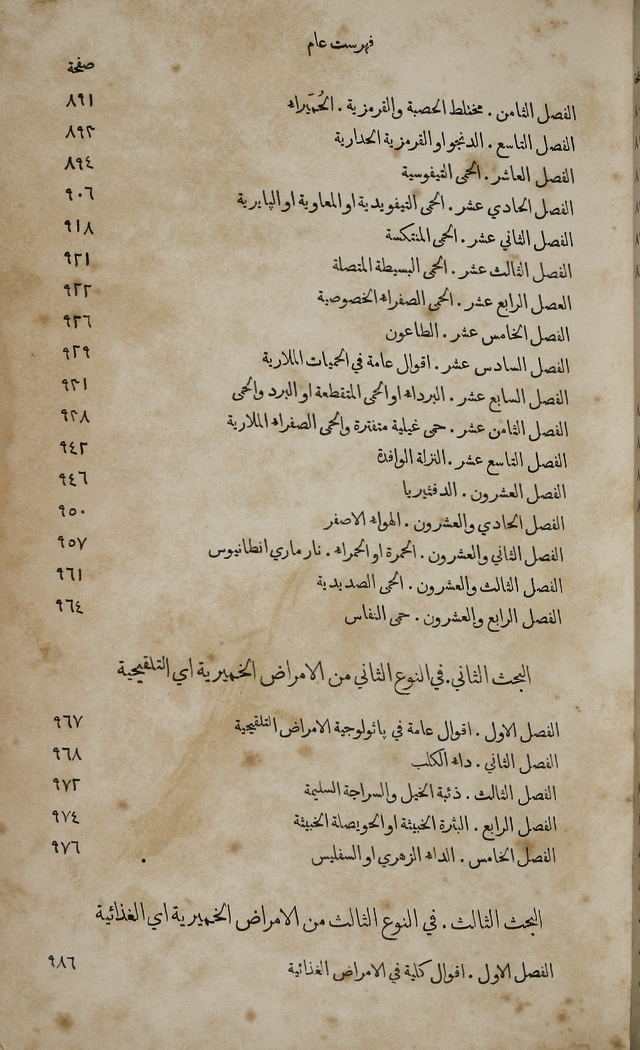 فهرست عام
صفحة
الفصل الثامن . مختلط الحصبة والقرمزية . الحُمَيراء ٨٩١
الفصل التاسع . الدنجو او القرمزية الحدارية ٨٩٢
الفصل العاشر . الحمى التيفوسية ٨٩٤
الفصل الحادي عشر . الحمى التيفويدية او المعاوية او الپايرية ٩٠٦
الفصل الثاني عشر . الحمى المنتكسة ٩١٨
الفصل الثالث عشر . الحمى البسيطة المتصلة ٩٢١
العصل الرابع عشر . الحمى الصفراء الخصوصية ٩٢٢
الفصل الخامس عشر . الطاعون ٩٢٦
الفصل السادس عشر . اقوال عامة في الحميات الملارية ٩٢٩
الفصل السابع عشر . البرداء او الحمى المتقطعة او البرد والحمى ٩٣١
الفصل الثامن عشر . حمى غيلية متفترة والحمى الصفراء الملارية ٩٣٨
الفصل التاسع عشر . النزلة الوافدة ٩٤٢
الفصل العشرون . الدفثيريا ٩٤٦
الفصل الحادي والعشرون . الهواء الاصفر ٩٥٠
الفصل الثاني والعشرون . الحمرة او الحمراء . نار ماري انطانيوس ٩٥٧
الفصل الثالث والعشرون . الحمى الصديدية ٩٦١
الفصل الرابع والعشرون . حمى النفاس ٩٦٤
البحث الثاني . في النوع الثاني من الامراض الخميرية اي التلقيحية
الفصل الاول . اقوال عامة في پاثولوجية الامراض التلقيحية ٩٦٧
الفصل الثاني . داء الكلب ٩٦٨
الفصل الثالث . ذئبة الخيل والسراجة السليمة ٩٧٢
الفصل الرابع . البثرة الخبيثة او الحويصلة الخبيثة ٩٧٤
الفصل الخامس . الداء الزهري او السفليس ٩٧٦
البحث الثالث . في النوع الثالث من الامراض الخميرية اي الغذائية
الفصل الاول . اقوال كلية في الامراض الغذائية ٩٨٦